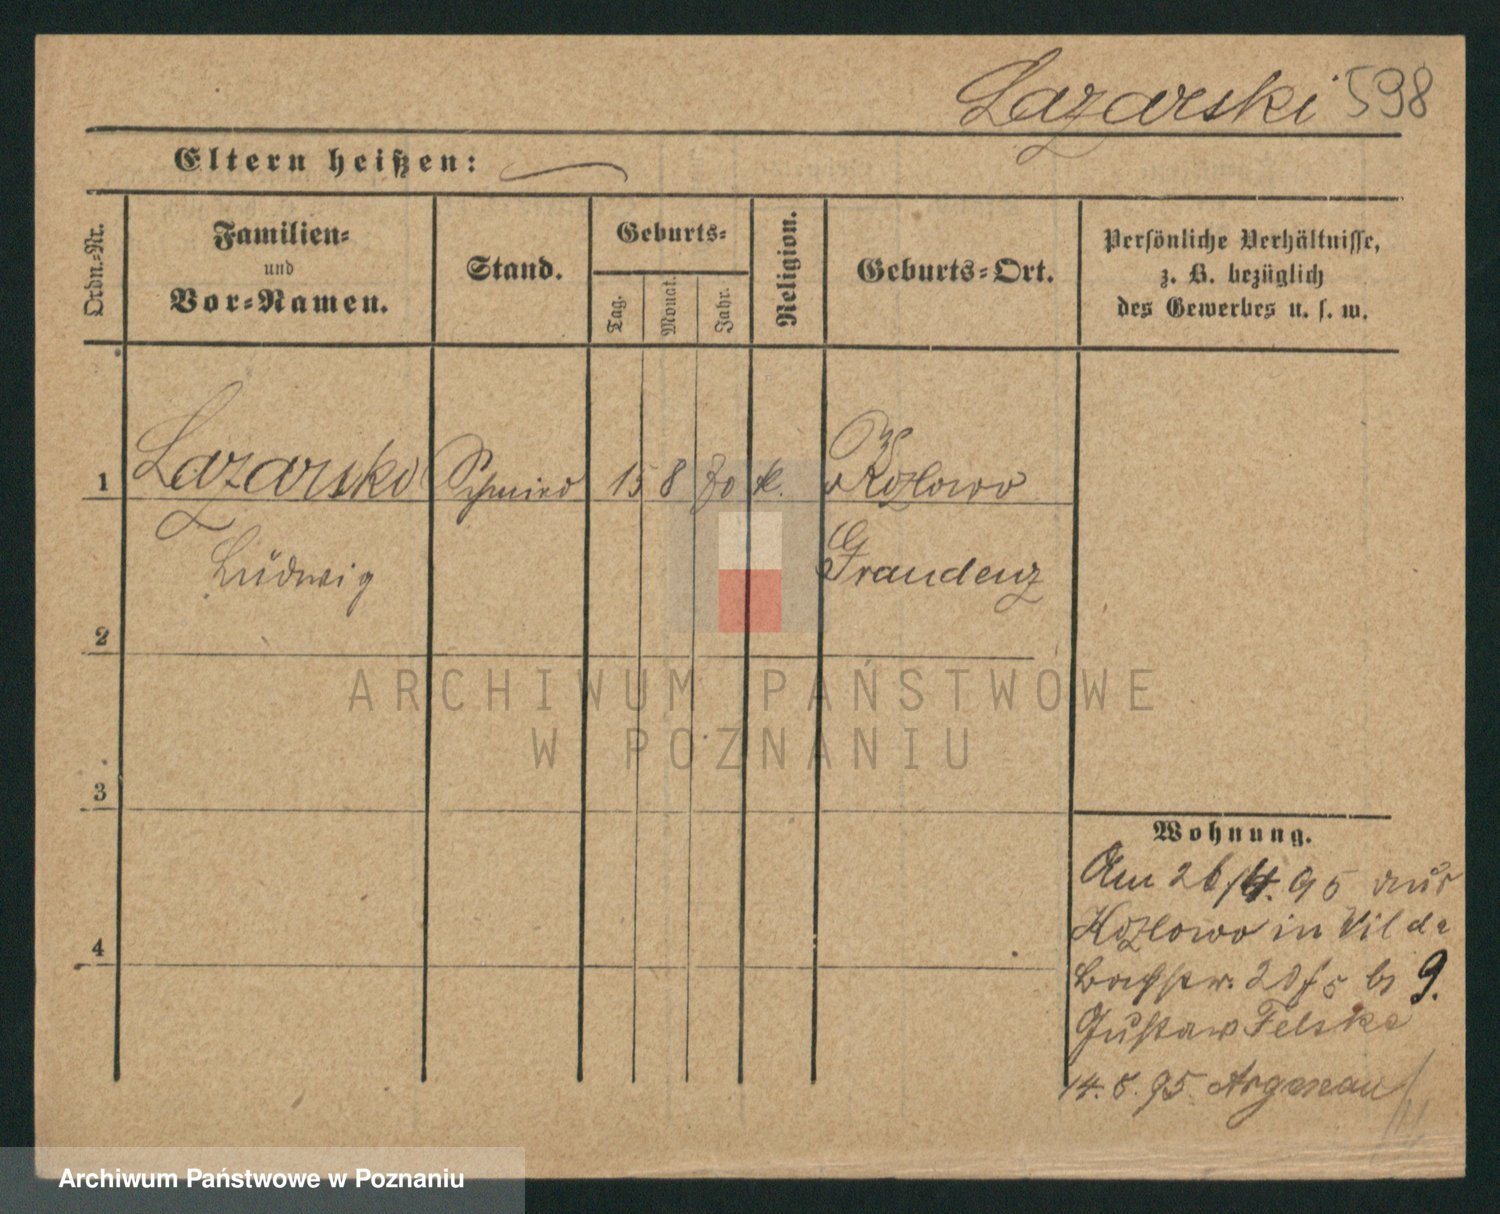 Lazarski 598
Eltern heißen:
Ordn.-Nr.
Familien-
und
Vor-Namen.
Stand.
Geburts-
Tag.
Monat.
Jahr.
Religion.
Geburts-Ort.
Persönliche Verhältnisse,
z. B. bezüglich
des Gewerbes u. s. w.
1 Lazarski Schmied 15 8 70 k. Kozlowo
Ludwig Graudenz
2
ARCHIWUM PAŃSTWOWE
W POZNANIU
3
Wohnung.
Am 26/4. 95 aus
Kozlowo in Wilda
4
Bachstr. 20 bi 9.
Gustav Felske
14. 5. 95. Argenau
Archiwum Państwowe w Poznaniu